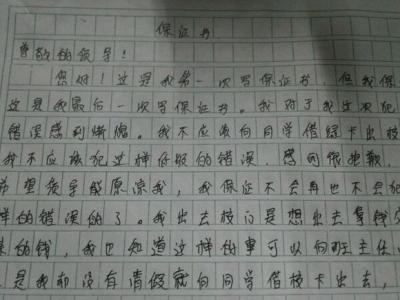 保证书
尊敬的领导！
您好！这是我第一次写保证书，但我保
这是我最后一次写保证书。我对于我这次犯
错误感到惭愧。我不应该向同学借绿卡出校
我不应该犯这样低级的错误，感到很抱歉，
希望领导能原谅我，我保证不会再也不会犯
样的错误的了。我出去校门是想出去拿钱
来的钱，我也知道这样的事可以向班主任
是我却没有请假就向同学借校卡出去，